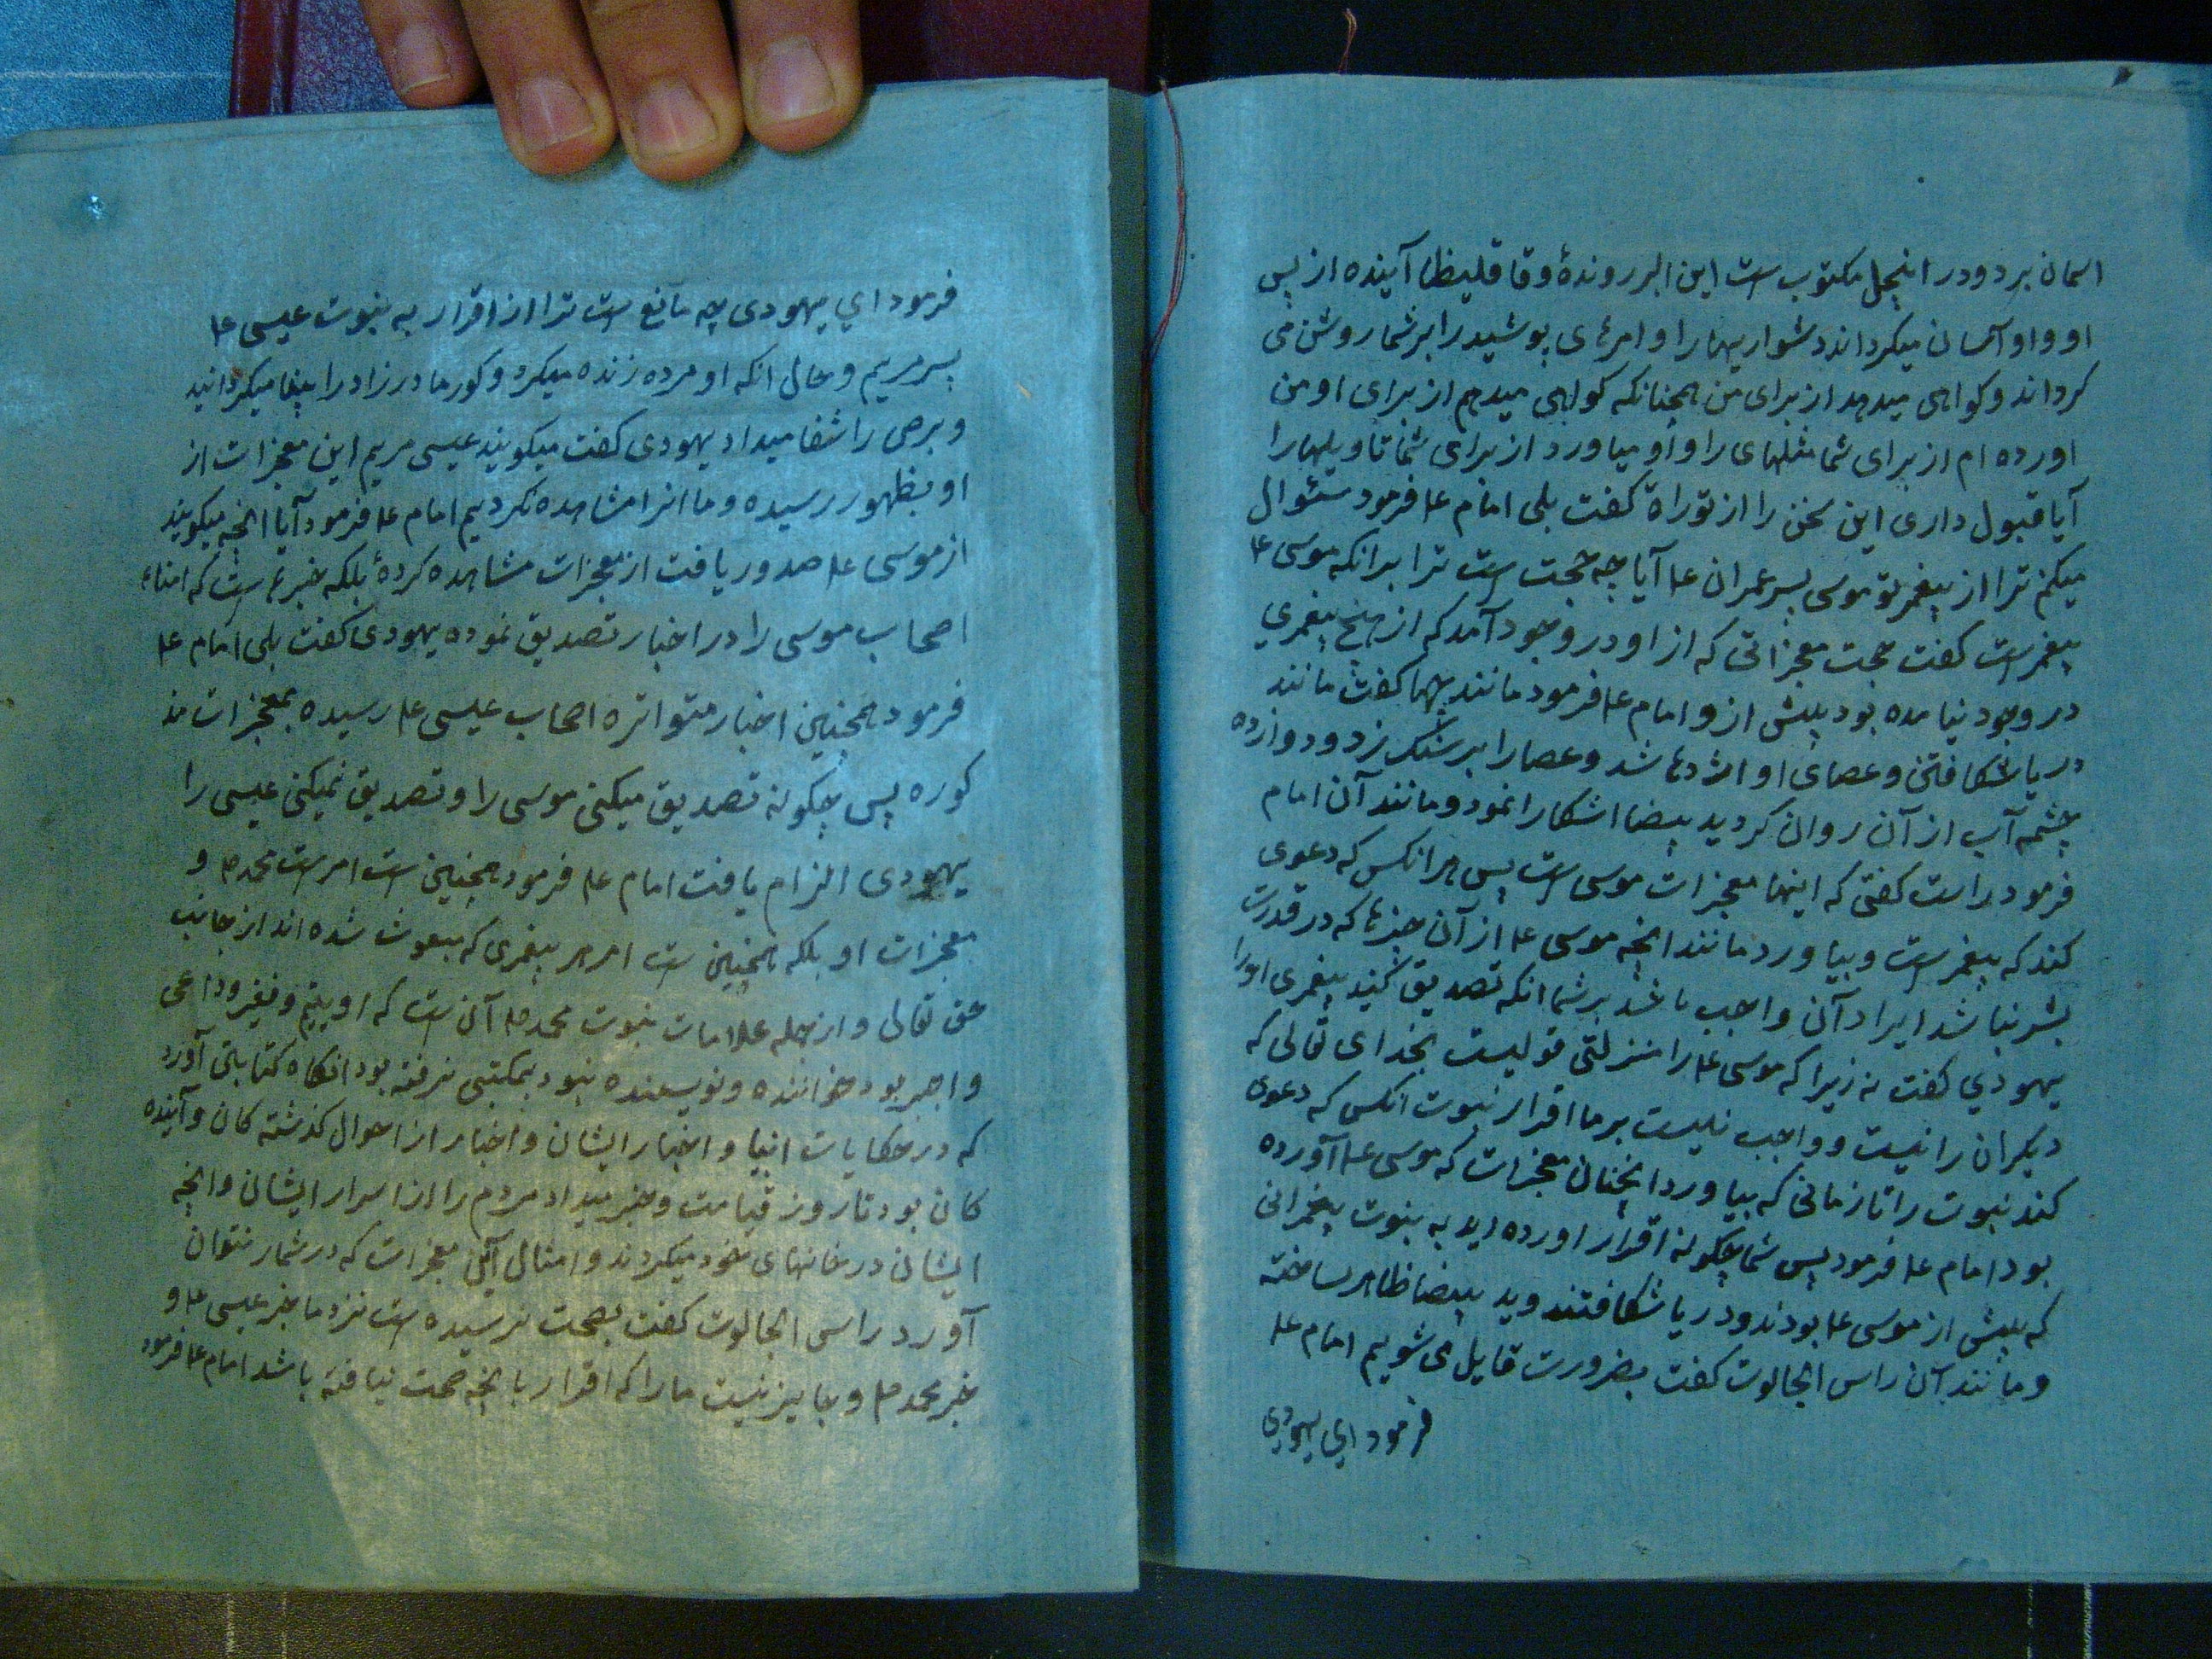 اسمان برد و در انجیل مکتوب ست این البر رونده و فاقلیظا آینده از پس
او و او آسان میکرداند دشواریها را و امرهای پوشید را بر شما روشن می
کرداند و کواهی میدهد از برای من همچنانکه کواهی میدهم از برای او من
اورده ام از برای شما مثلهای را و او میاورد از برای شما تاویلها را
آیا قبول داری این سخن را از توراة کفت بلی امام ع فرمود سئوال
میکنم ترا از پیغمبر تو موسی پسر عمران ع آیا چه حجت ست ترا برانکه موسی ع
پیغمبرست کفت حجت معجزاتی که از او در وجود آمد که از هیچ پیغمبری
در وجود نیامده بود پیش ازو امام ع فرمود مانند چها کفت مانند
دریا شکافتن و عصای او اژدها شد و عصا را بر سنک زد و دوازده
چشمه آب از آن روان کردید بیضا اشکارا نمود و مانند آن امام
فرمود راست کفتی که اینها معجزات موسی ست پس هر انکس که دعوی
کند که پیغمبرست و بیاورد مانند انچه موسی ع از آن چیزها که در قدرت
بشر نباشد ایراد آن واجب باشد بر شما انکه تصدیق کنید پیغمبری اورا
یهودي کفت نه زیرا که موسی ع را منزلتی قولیست بخدای تعالی که
دیکران را نیست و واجب نیست بر ما اقرار نبوت انکس که دعوی
کند نبوت را تا زمانی که بیاورد انچنان معجزات که موسی ع آورده
بود امام ع فرمود پس شما چکونه اقرار اورده اید به نبوت پیغمبرانی
که پیش از موسی ع بودند و دریا شکافتند وید بیضا ظاهر ساخته
و مانند آن راس الجالوت کفت بضرورت قایل می شویم امام ع
فرمود ای یهودی
فرمود اي یهودی چه مانع ست ترا از اقرار به نبوت عیسی ع
پسر مریم و حال انکه او مرده زنده میکرد و کور مادرزاد را بینا میکردانید
و برص را شفا میداد یهودی کفت میکویند عیسی مریم این معجزات از
او بظهور رسیده و ما انرا مشاهده نکردیم امام ع فرمود آیا انچه میکویند
از موسی ع صدور یافت از معجزات مشاهده کردهٔ بلکه خبرست که امناء
اصحاب موسی را در اخبار تصدیق نموده یهودی کفت بلی امام ع
فرمود همچنین اخبار متواتره اصحاب عیسی ع رسیده بمعجزات مذ
کوره پس چکونه تصدیق میکنی موسی را و تصدیق نمیکنی عیسی را
یهودی الزام یافت امام ع فرمود همچنین ست امرست محمد ص و
معجزات او بلکه همچنین ست امر هر پیغمبری که مبعوث شده اند از جانب
حق تعالی و از جمله علامات نبوت محمد ص آن ست که او یتیم و فقیر و داعی
و اجیر بود خواننده و نویسنده نبود بمکتبی نرفته بود انکاه کتابتی آورد
که در حکایات انبیا و اخبار ایشان و اخبار از احوال کذشته کان و آینده
کان بود تا روز قیامت و خبر میداد مردم را از اسرار ایشان و انچه
ایشان در خانهای خود میکردند و امثال آن معجزات که در شمار نتوان
آورد راس الجالوت کفت بصحت نرسیده ست نزد ما خبر عیسی ع و
خبر محمد ص و جایز نیست ما را که اقرار با انچه صحت نیافته باشد امام ع فرمود